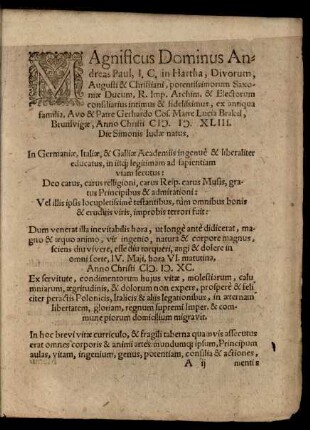 MAgnificus Dominus An-
dreas Paul, I, C, in Hartha, Divorum,
Augusti & Christiani, potentissimorum Saxo-
niæ Ducum, R. Imp. Archim. & Electorum
consiliarius intimus & fidelissimus, ex antiqua
familia, Avo & Patre Gerhardo Cos. Matre Lucia Brakel,
Brunsvigæ, Anno Christi CIↃ. IↃ. XLIII.
Die Simonis Iudæ natus,
In Germaniæ, Italiæ, & Galliæ Academiis ingenuè & liberaliter
educatus, in iisq; legitimam ad sapientiam
viam secutus:
Deo carus, carus religioni, carus Reip. carus Musis, gra-
tus Principibus & admirationi:
Vel illis ipsis locupletissimè testantibus, tum omnibus bonis
& eruditis viris, improbis terrori fuit:
Dum venerat illa inevitabilis hora, ut longè antè didicerat, mag-
nu & æquo animo, vir ingenio, natura & corpore magnus,
sciens diu vivere, esse diu torqueri, angi & dolere in
omni sorte, IV. Maji, hora VI. matutina,
Anno Christi CIↃ. IↃ. XC.
Ex servitute, condimentorum hujus vitæ, molestiarum, calu
mniarum, ægritudinis, & dolorum non expers, prosperè & feli
citer peractis Polonicis, Italicis & aliis legationibus, in æternam
libertatem, gloriam, regnum supremi Imper. & com-
mune piorum domicilium migravit.
In hoc brevi vitæ curriculo, & fragili taberna quamvis assecutus
erat omnes corporis & animi artes mundumq; ipsum, Principum
aulas, vitam, ingenium, genus, potentiam, consilia & actiones,
A ij
menti s